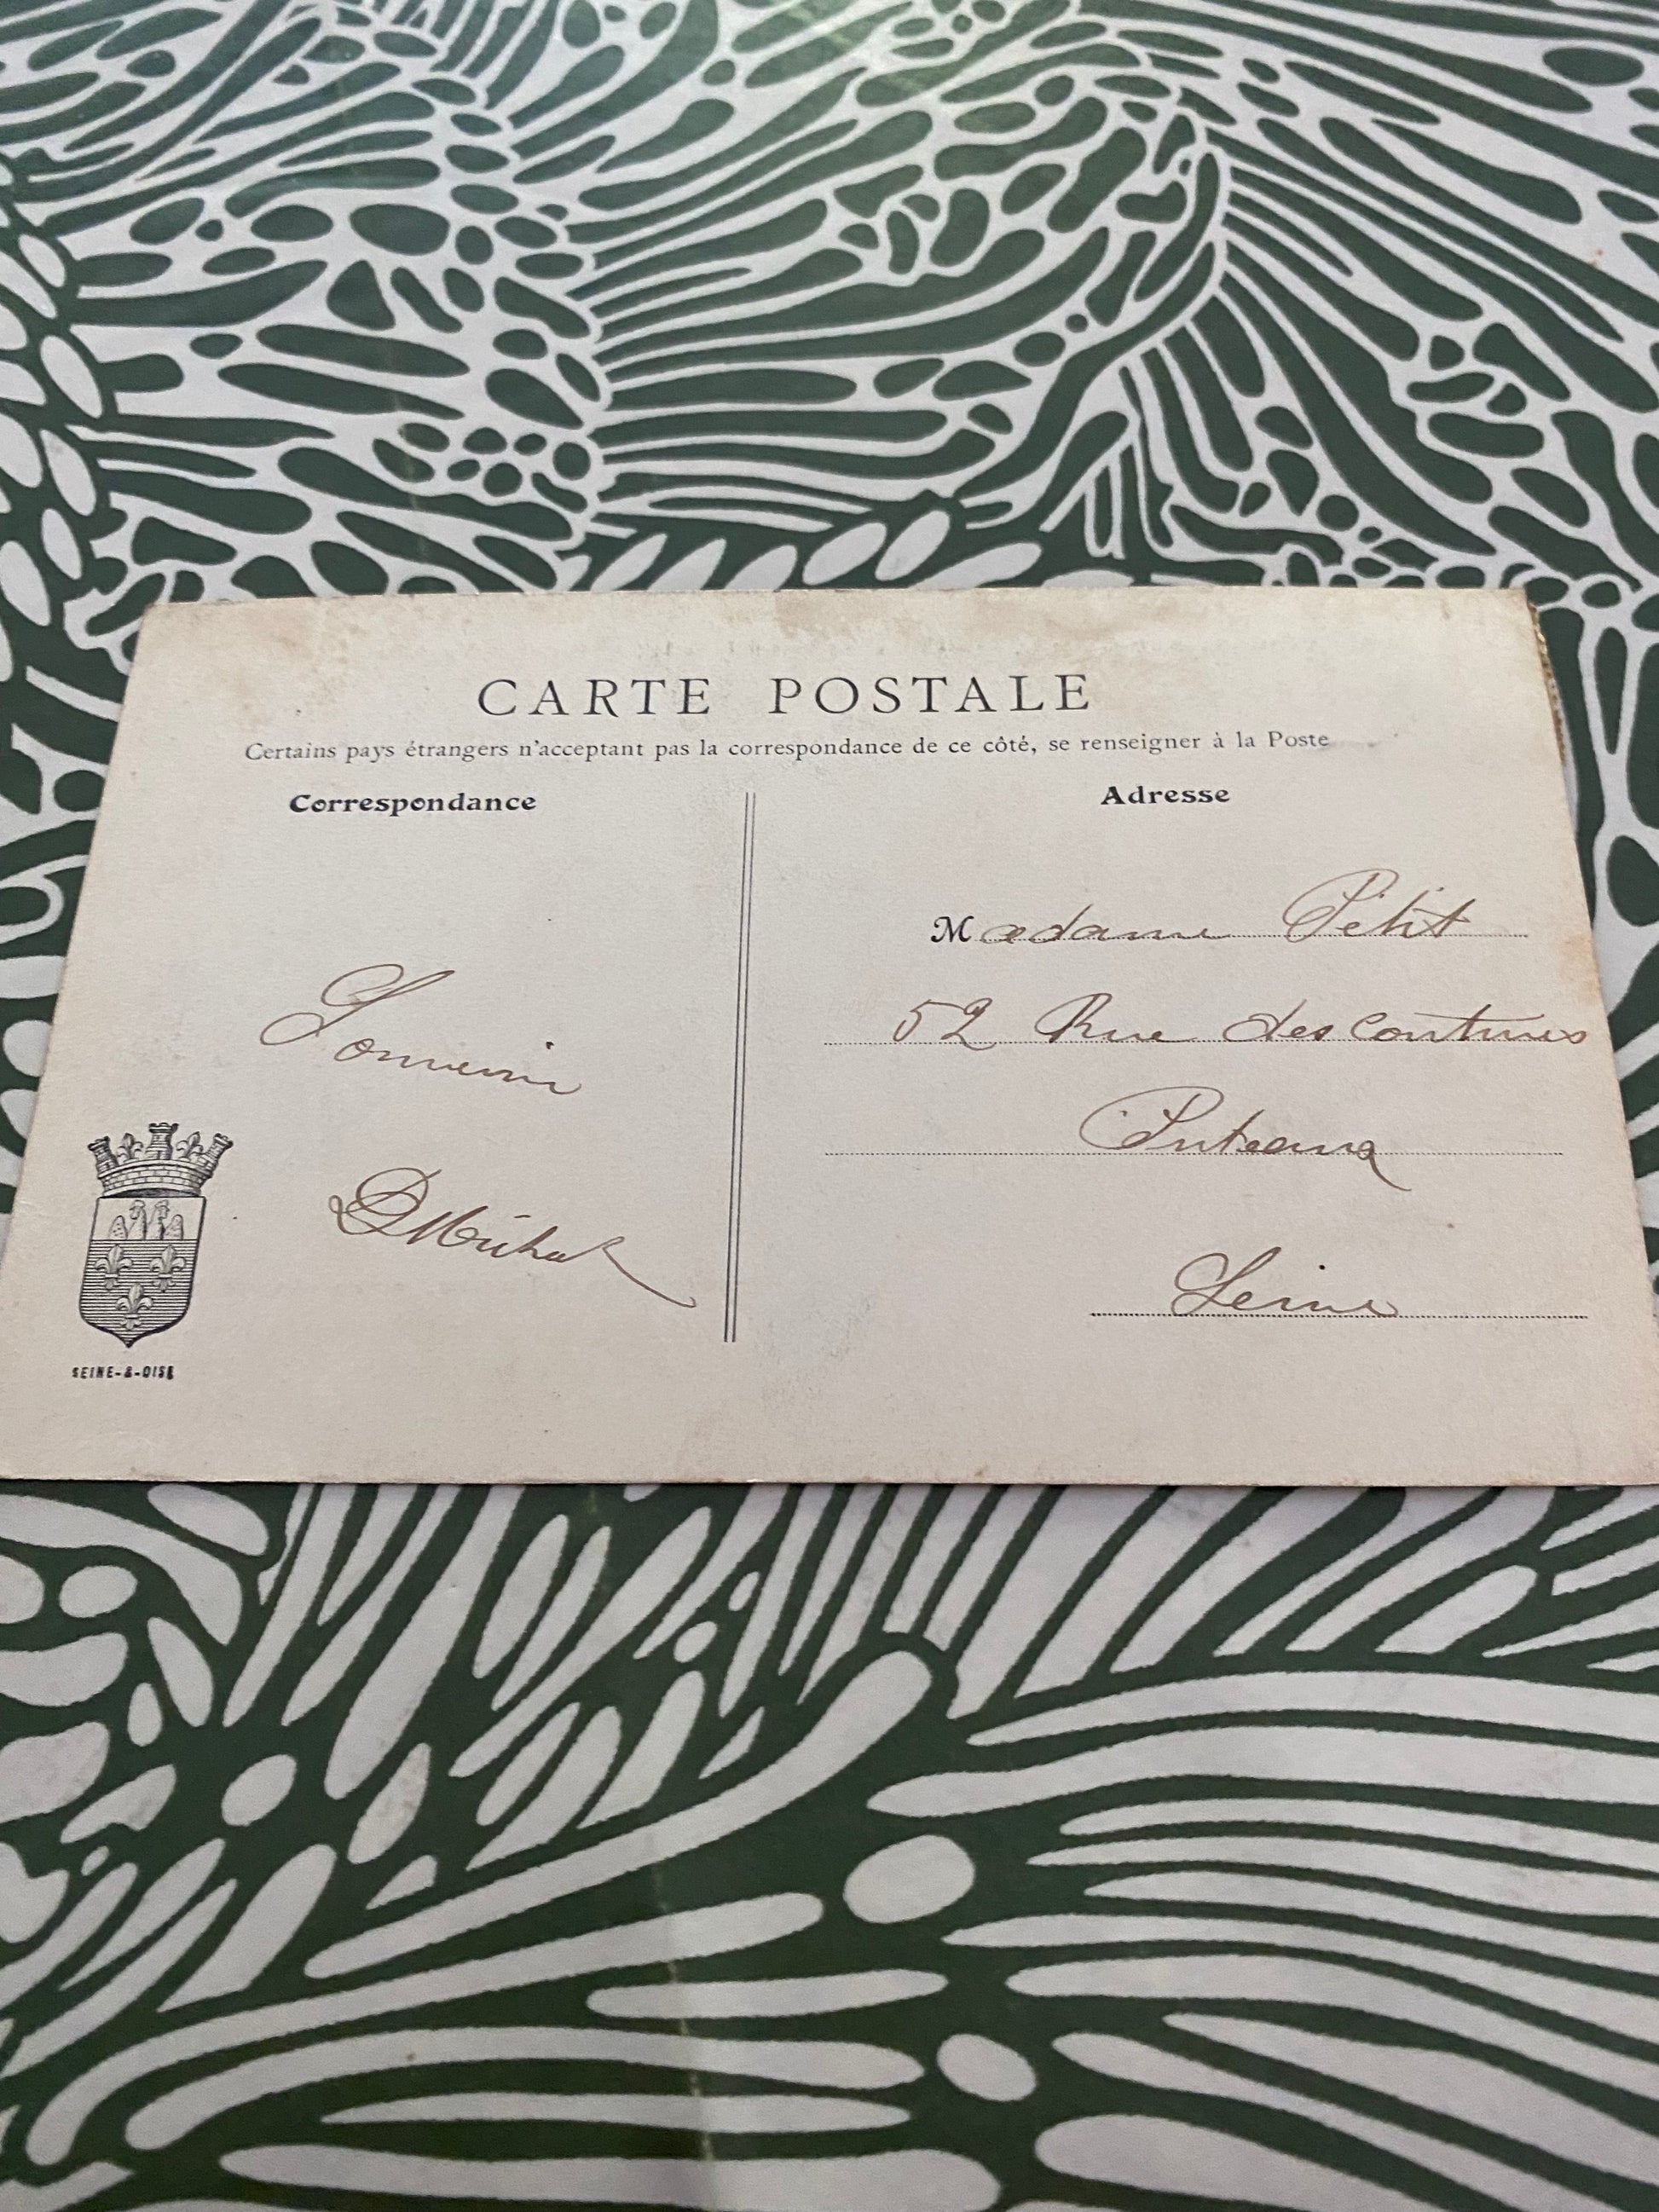 CARTE POSTALE
Certains pays étrangers n'acceptant pas la correspondance de ce côté, se renseigner à la Poste
Correspondance
Souvenir
SEINE-&-OISE
Adresse
Madame Petit
52 Rue des Coutures
Puteaux
Seine